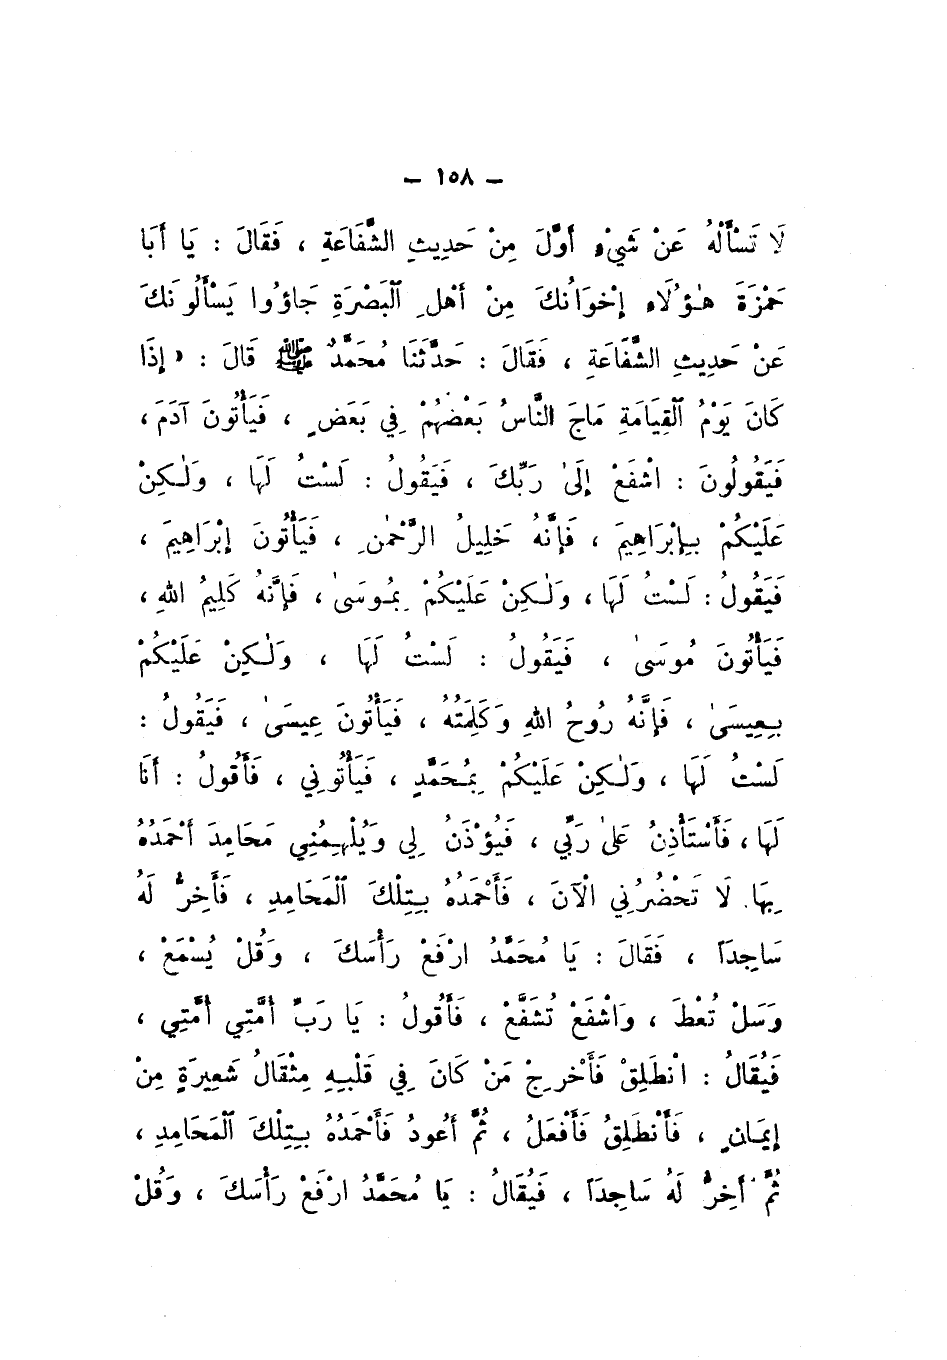 – ١٥٨ –
لَا تَسْأَلْهُ عَنْ شَيْءٍ أَوَّلَ مِنْ حَدِيثِ الشَّفَاعَةِ ، فَقَالَ : يَا أَبَا
حَمْزَةَ هٰؤُلَاءِ إِخْوَانُكَ مِنْ أَهْلِ ٱلْبَصْرَةِ جَاؤُوا يَسْأَلُونَكَ
عَنْ حَدِيثِ الشَّفَاعَةِ ، فَقَالَ : حَدَّثَنَا مُحَمَّدٌ ﷺ قَالَ : « إِذَا
كَانَ يَوْمُ ٱلْقِيَامَةِ مَاجَ النَّاسُ بَعْضُهُمْ فِي بَعَضٍ ، فَيَأْتُونَ آدَمَ ،
فَيَقُولُونَ : اشْفَعْ إِلَىٰ رَبِّكَ ، فَيَقُولُ : لَسْتُ لَهَا ، وَلٰكِنْ
عَلَيْكُمْ بِإِبْرَاهِيمَ ، فَإِنَّهُ خَلِيلُ الرَّحْمٰنِ ، فَيَأْتُونَ إِبْرَاهِيمَ ،
فَيَقُولُ : لَسْتُ لَهَا ، وَلٰكِنْ عَلَيْكُمْ بِمُوسَىٰ ، فَإِنَّهُ كَلِيمُ اللهِ ،
فَيَأْتُونَ مُوسَىٰ ، فَيَقُولُ : لَسْتُ لَهَا ، وَلٰكِنْ عَلَيْكُمْ
بِعِيسَىٰ ، فَإِنَّهُ رُوحُ اللهِ وَكَلِمَتُهُ ، فَيَأْتُونَ عِيسَىٰ ، فَيَقُولُ :
لَسْتُ لَهَا ، وَلٰكِنْ عَلَيْكُمْ بِمُحَمَّدٍ ، فَيَأْتُونِي ، فَأَقُولُ : أَنَا
لَهَا ، فَأَسْتَأْذِنُ عَلَىٰ رَبِّي ، فَيُؤْذَنُ لِي وَيُلْهِمُنِي مَحَامِدَ أَحْمَدُهُ
بِهَا. لَا تَحْضُرُنِي الْآنَ ، فَأَحْمَدُهُ بِتِلْكَ ٱلْمَحَامِدِ ، فَأَخِرُّ لَهُ
سَاجِدَاً ، فَقَالَ : يَا مُحَمَّدُ ارْفَعْ رَأْسَكَ ، وَقُلْ يُسْمَعْ ،
وَسَلْ تُعْطَ ، وَاشْفَعْ تُشَفَّعْ ، فَأَقُولُ : يَا رَبِّ أُمَّتِي أُمَّتِي ،
فَيُقَالُ : انْطَلِقْ فَأَخْرِجْ مَنْ كَانَ فِي قَلْبِهِ مِثْقَالُ شَعِيرَةٍ مِنْ
إِيمَانٍ ، فَأَنْطَلِقُ فَأَفْعَلُ ، ثُمَّ أَعُودُ فَأَحْمَدُهُ بِتِلْكَ ٱلْمَحَامِدِ ،
ثُمَّ أَخِرُّ لَهُ سَاجِدَاً ، فَيُقَالُ : يَا مُحَمَّدُ ارْفَعْ رَأْسَكَ ، وَقُلْ